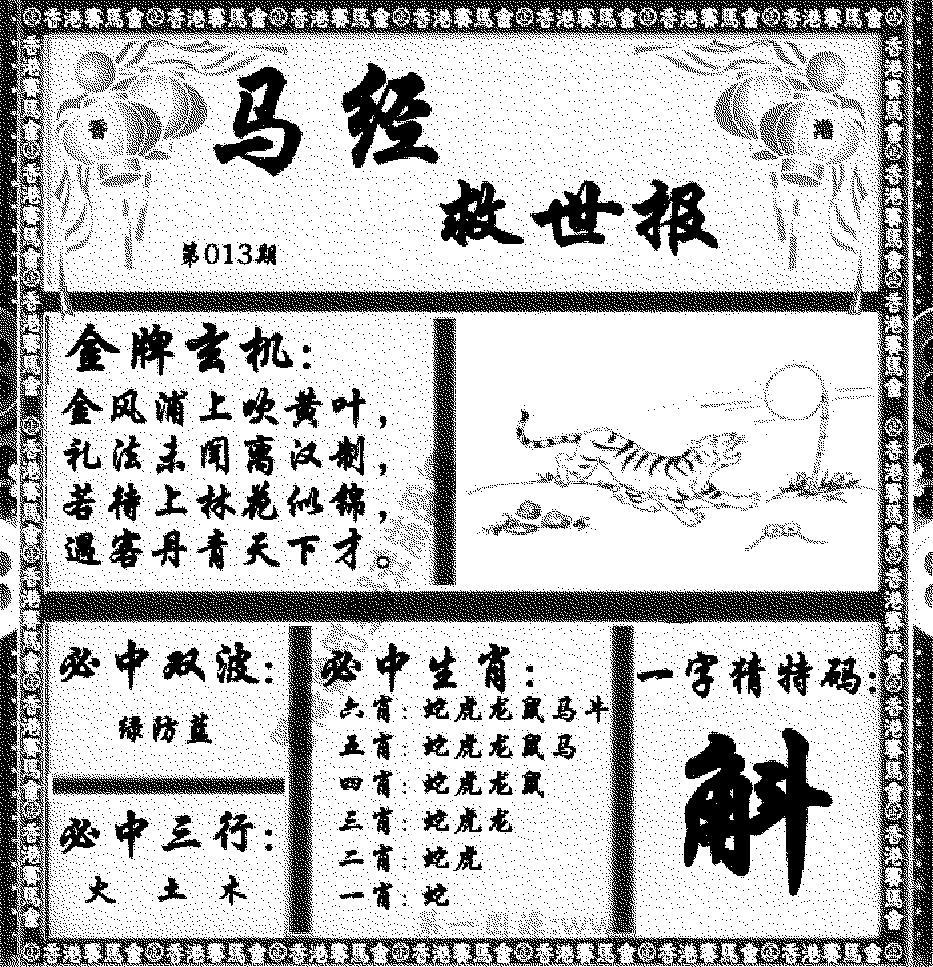 香港賽馬會香港賽馬會香港賽馬會香港賽馬會香港賽馬會香港賽馬會香港賽馬會
香
港
马经
救世报
第013期
金牌玄机:
金风浦上吹黄叶,
礼法未闻离汉制,
若待上林花似锦,
遇害丹青天下才。
必中双波:
绿防蓝
必中三行:
火 土 木
必中生肖:
六肖: 蛇虎龙鼠马斗
五肖: 蛇虎龙鼠马
四肖: 蛇虎龙鼠
三肖: 蛇虎龙
二肖: 蛇虎
一肖: 蛇
一字猜特码:
斛
香港賽馬會香港賽馬會香港賽馬會香港賽馬會香港賽馬會香港賽馬會香港賽馬會